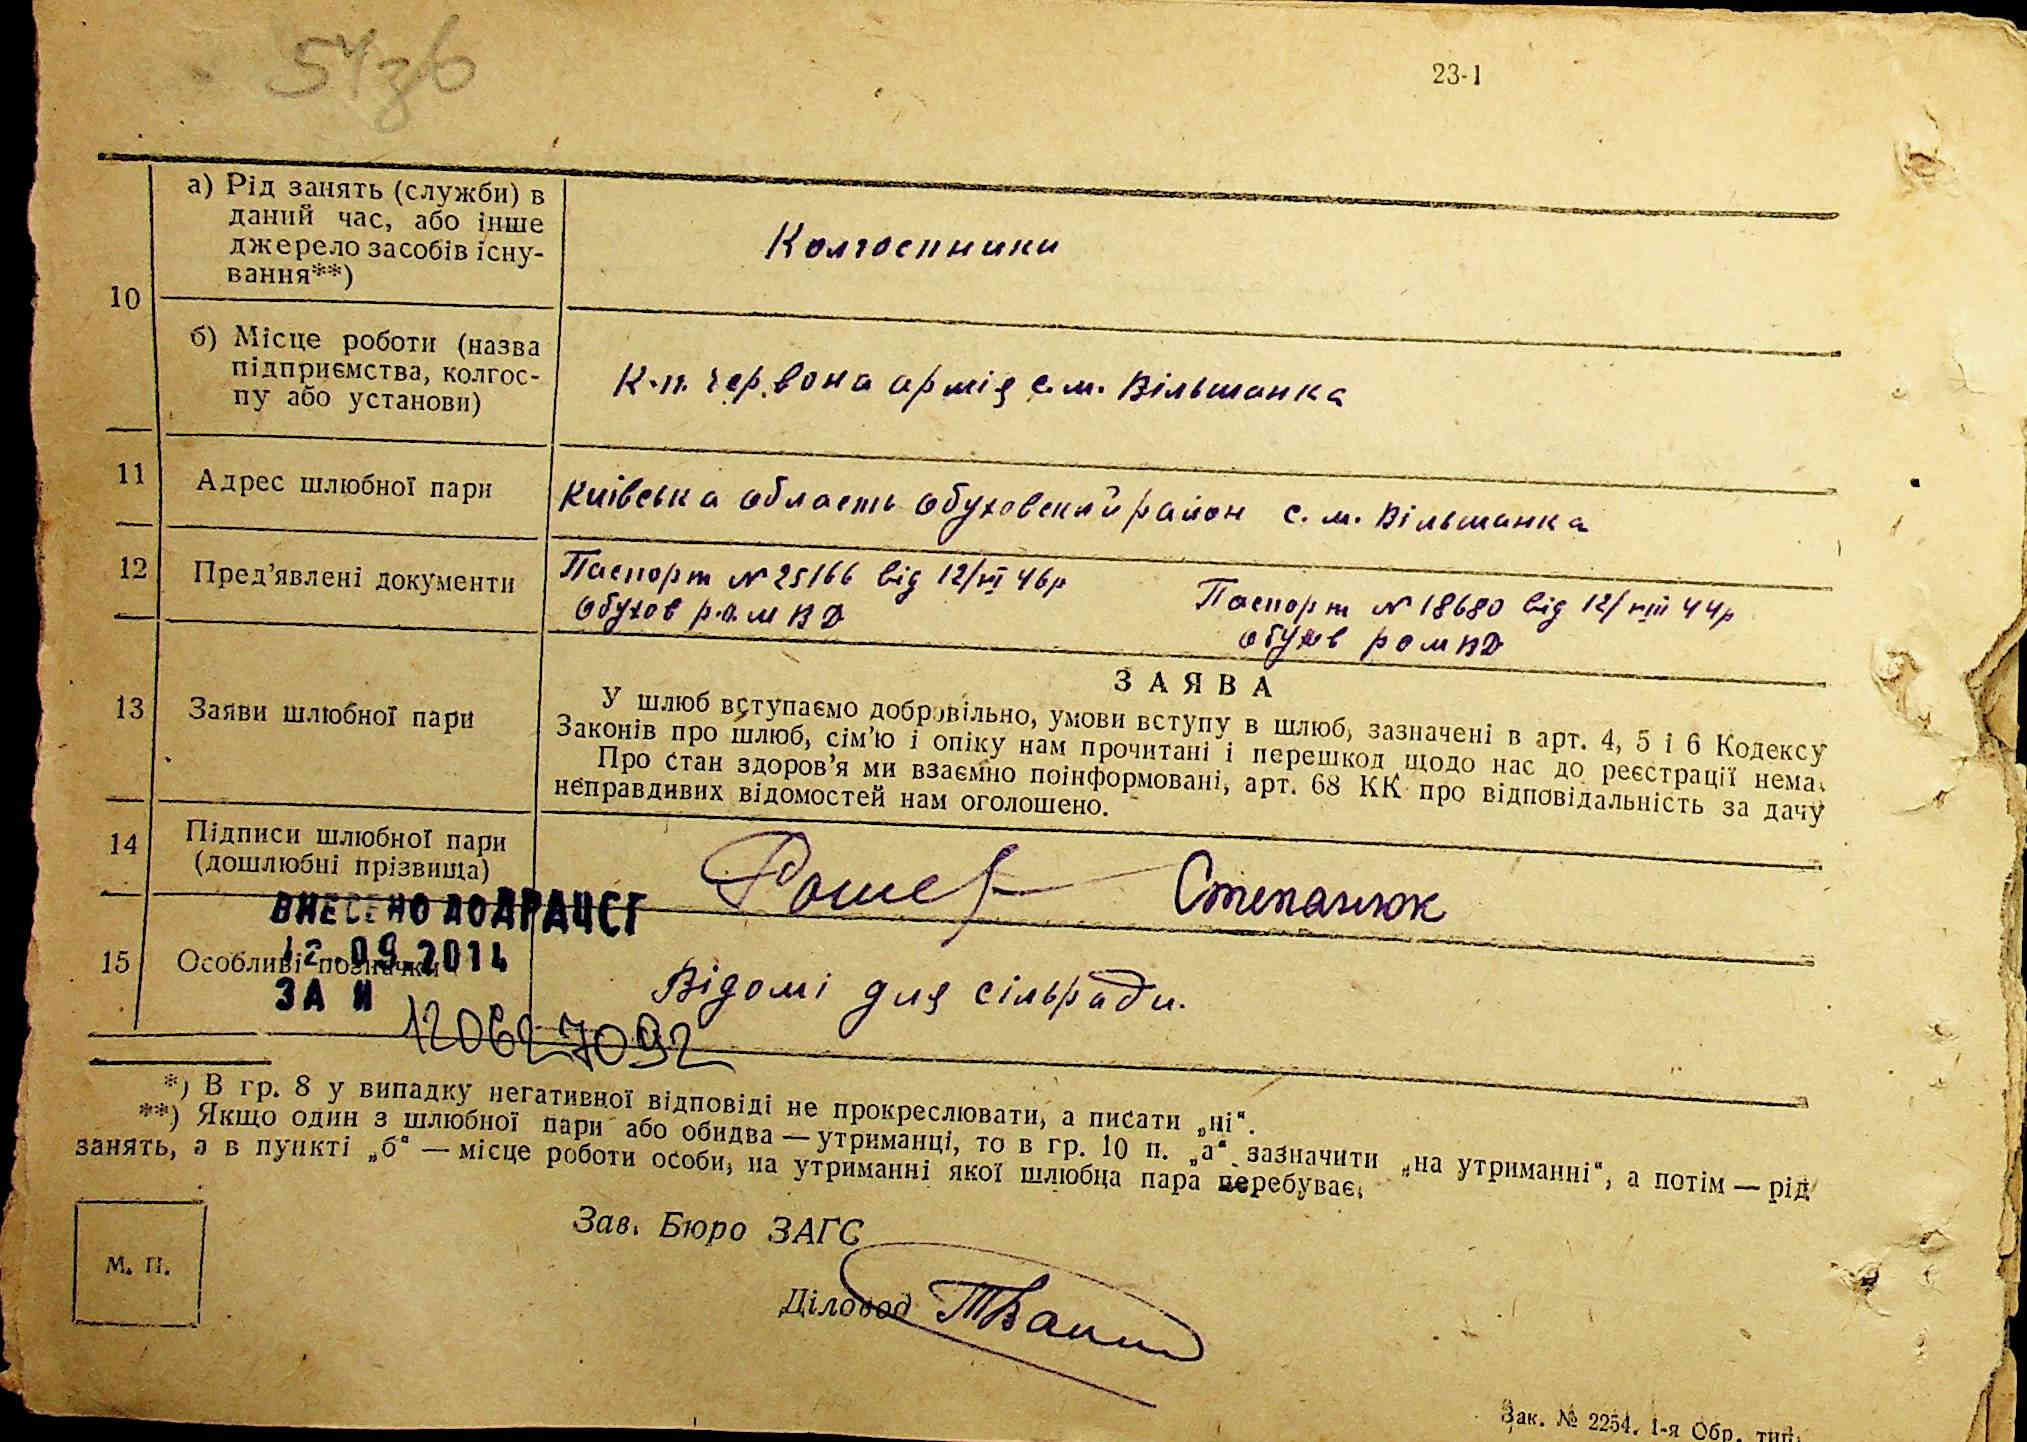 54зв
23-1
10
а) Рід занять (служби) в
даний час, або інше
джерело засобів існу-
вання**)
Колгоспники
б) Місце роботи (назва
підприємства, колгос-
пу або установи)
К-п. червона армія с. м. Вільшанка
11
Адрес шлюбної пари
Київська область Обуховский район с. м. Вільшанка
12
Пред’явлені документи
Паспорт № 25166 від 12/ 46р
Обухов р.о. М В Д
Паспорт № 18680 від 12/VIII 44р
Обухов р о М В Д
13
Заяви шлюбної пари
ЗАЯВА
У шлюб вступаємо добровільно, умови вступу в шлюб, зазначені в арт. 4, 5 і 6 Кодексу
Законів про шлюб, сім’ю і опіку нам прочитані і перешкод щодо нас до реєстрації нема.
Про стан здоров’я ми взаємно поінформовані, арт. 68 КК про відповідальність за дачу
неправдивих відомостей нам оголошено.
14
Підписи шлюбної пари
(дошлюбні прізвища)
Степанюк
ВНЕСЕНО ДО ДРАЦСГ
12.09.2014
ЗА №
120627092
15
Особливі позначки
Відомі для сільради.
*) В гр. 8 у випадку негативної відповіді не прокреслювати, а писати „ні“.
**) Якщо один з шлюбної пари або обидва — утриманці, то в гр. 10 п. „а“ зазначити „на утриманні“, а потім — рід
занять, а в пункті „б“ — місце роботи особи, на утриманні якої шлюбна пара перебуває.
Зав. Бюро ЗАГС
М. П.
Діловод
Зак. № 2254. 1-я Обр. тип.